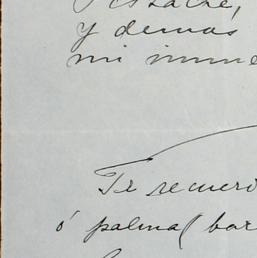 y demas
mi inme
Te recuer
ó palma (bar